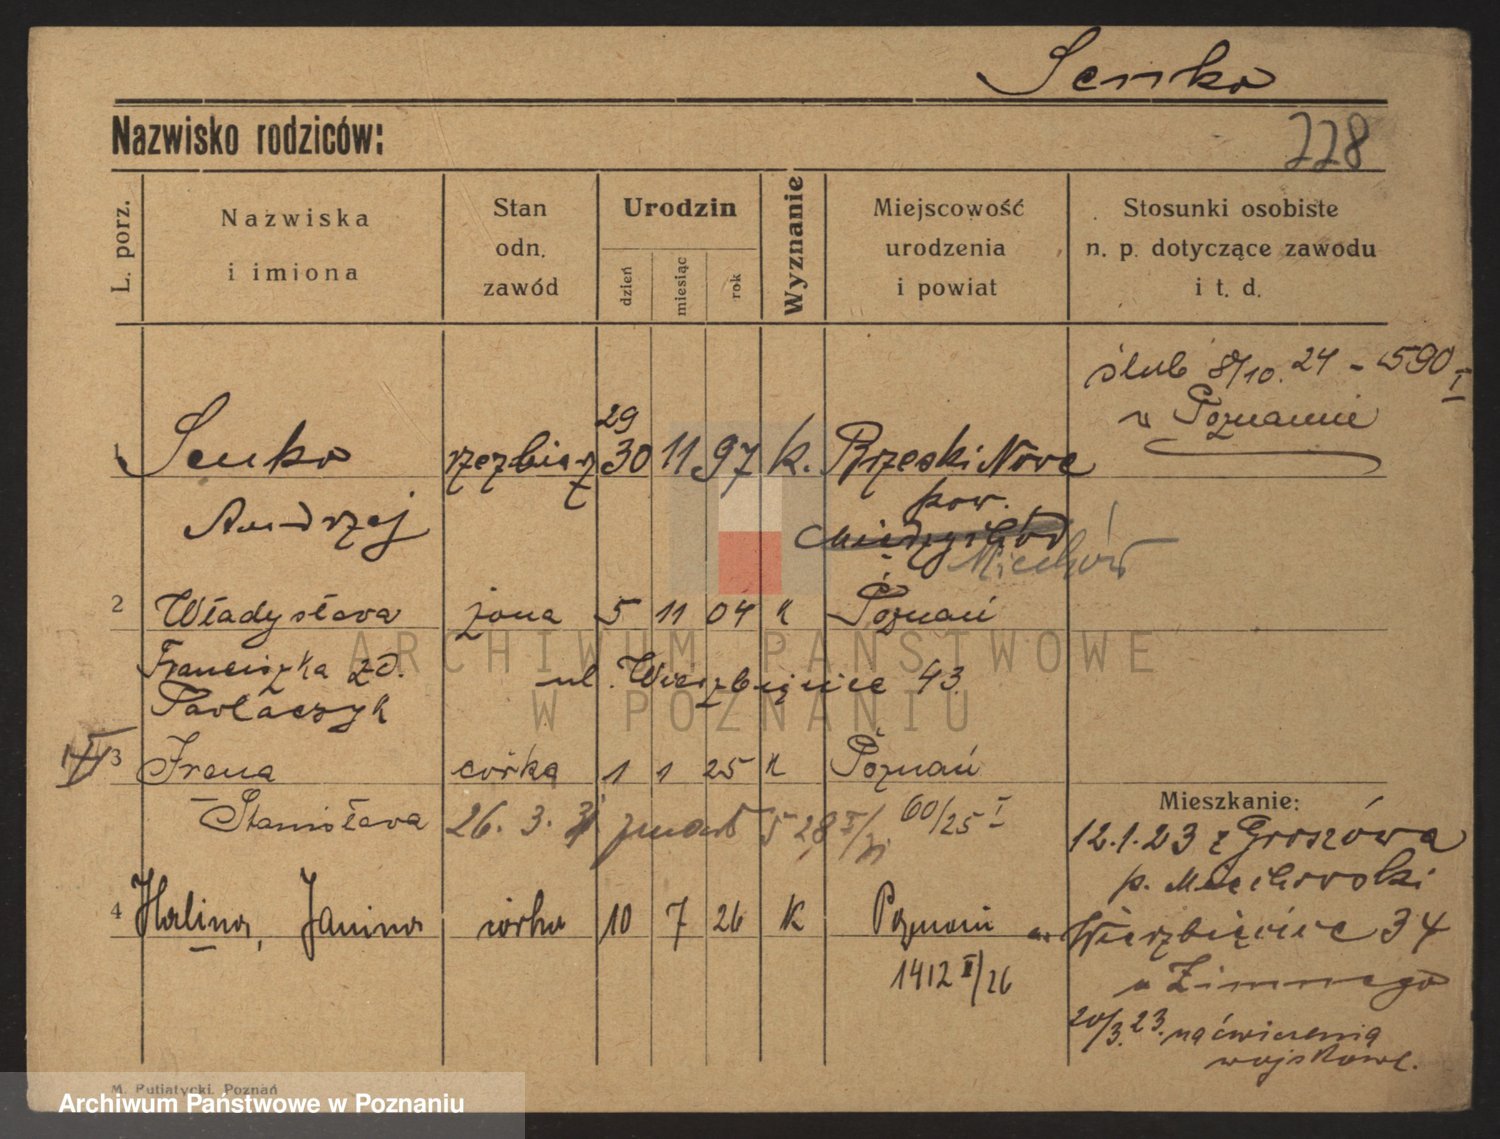 Senko
Nazwisko rodziców:
228
L. porz.
Nazwiska
i imiona
Stan
odn.
zawód
Urodzin
dzień
miesiąc
rok
Wyznanie
Miejscowość
urodzenia
i powiat
Stosunki osobiste
n. p. dotyczące zawodu
i t. d.
ślub 8/10. 24 - 590 I
w Poznaniu
1 Senko rzeźbiarz 29 30 11 97 k. Brzeski Nowe
Andrzej pow.
Międzychód Miechów
2 Władysława żona 5 11 04 k Poznań
Franciszka zd. ul. Wierzbięcice 43
Pawlaczyk
3 Irena córka 1 1 25 k Poznań
Stanisława 26. 3. zmarł 5 28 60/25 I
4 Halina, Janina córka 10 7 26 k Poznań
1412 II/26
Mieszkanie:
12.1.23 z Groszowa
p. Miechowski
Wierzbięcice 34
u Zimnego
20/3.23. na ćwiczenia
wojskowe.
M. Putiatycki, Poznań
ARCHIWUM PAŃSTWOWE
W POZNANIU
Archiwum Państwowe w Poznaniu